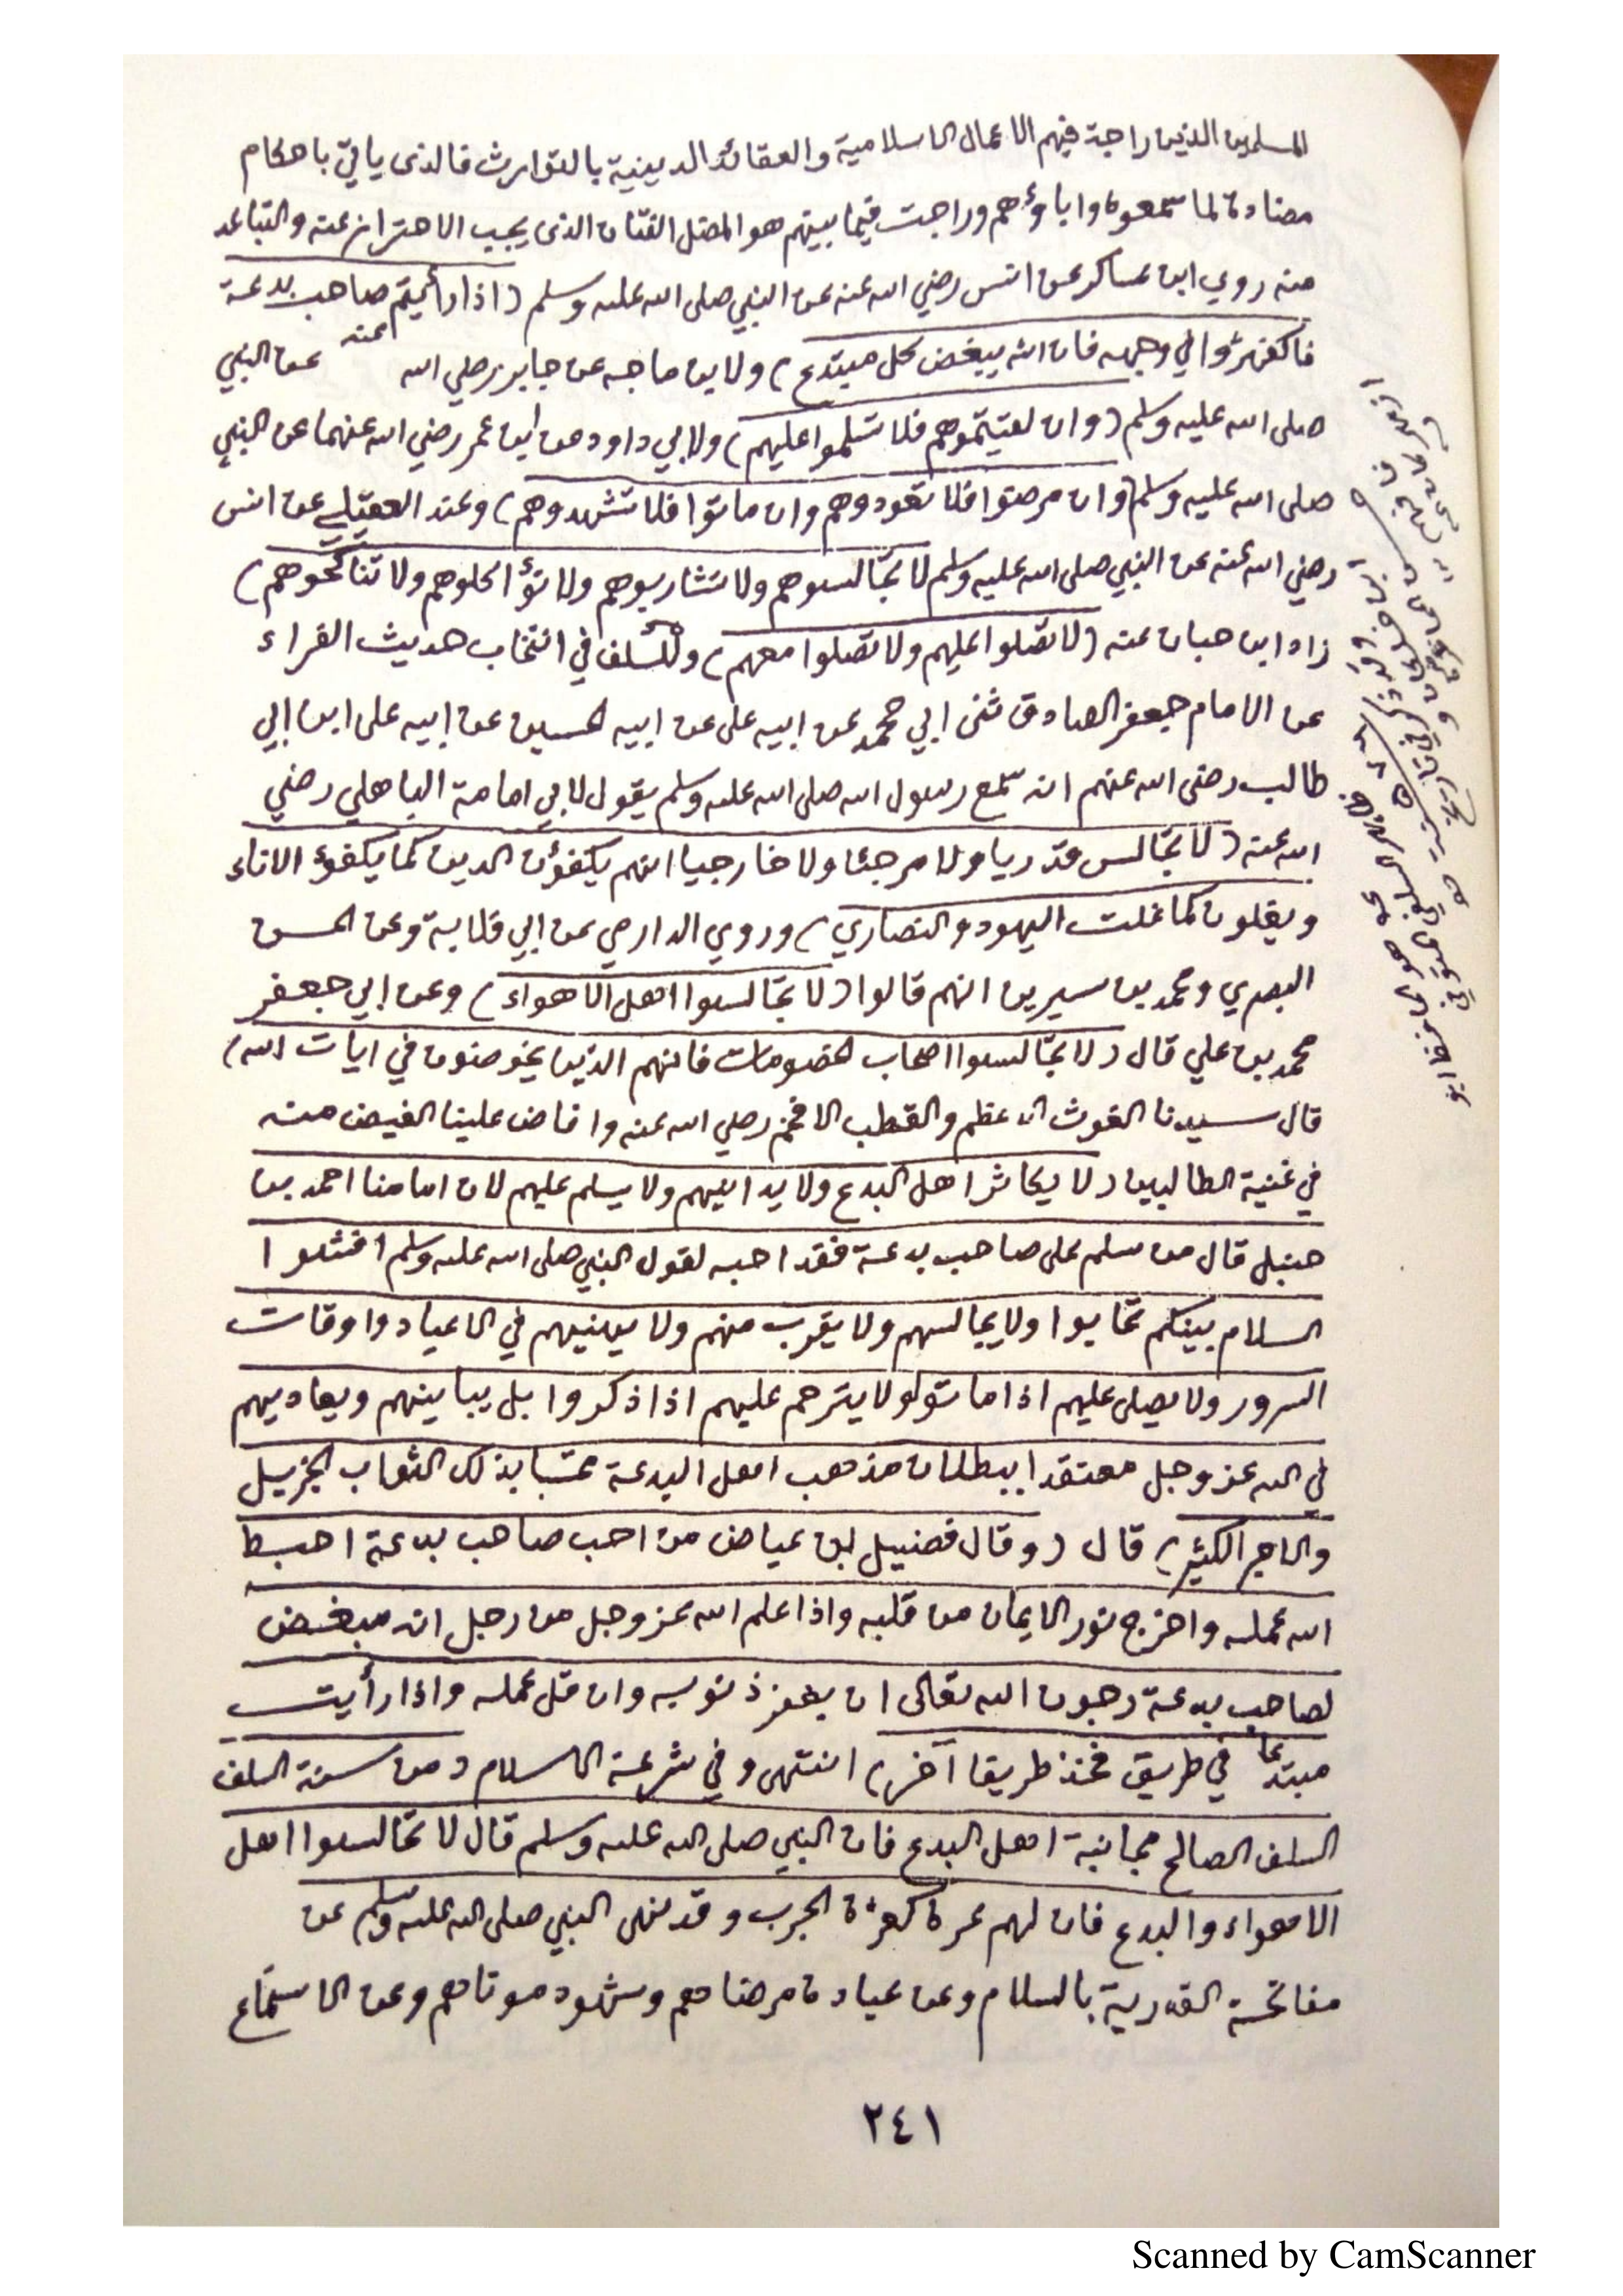 المسلمين الذين راجة فيهم الاعمال الاسلامية والعقائد الدينية بالتوارث فالذى يأتي باحكام
مضادة لما سمعوه واباؤهم وراجت فيما بينهم هو المضل الفتان الذى يجب الاحتراز عنه والتباعد
منه روي ابن عساكر عن انس رضي الله عنه عن النبي صلى الله عليه وسلم (اذا رأيتم صاحب بدعة
فاكفهرّوا في وجهه فان الله يبغض كل مبتدع) ولابن ماجه عن جابر رضي الله عنه عن النبي
صلى الله عليه وسلم (وان لقيتموهم فلا تسلموا عليهم) ولابي داود عن ابن عمر رضي الله عنهما عن النبي
صلى الله عليه وسلم (وان مرضوا فلا تعودوهم وان ماتوا فلا تشهدوهم) وعند العقيلي عن انس
رضي الله عنه عن النبي صلى الله عليه وسلم لا تجالسوهم ولا تشاربوهم ولا تؤاكلوهم ولا تناكحوهم)
زاد ابن حبان عنه (لا تصلوا عليهم ولا تصلوا معهم) وللسلف في انتخاب حديث القراء
عن الامام جعفر الصادق ثنى ابي محمد عن ابيه على عن ابيه الحسين عن ابيه على ابن ابي
طالب رضى الله عنهم انه سمع رسول الله صلى الله عليه وسلم يقول لابي امامة الباهلي رضي
الله عنه (لا تجالس قدريا ولا مرجئا ولا خارجيا انهم يكفؤن الدين كما يكفؤ الاناء
ويغلون كما غلت اليهود والنصاري) وروي الدارمي عن ابي قلابة وعن الحسن
البصري ومحمد بن سيرين انهم قالوا (لا تجالسوا اهل الاهواء) وعن ابي جعفر
محمد بن علي قال (لا تجالسوا اصحاب الخصومات فانهم الذين يخوضون في ايات الله)
قال سيدنا الغوث الاعظم والقطب الافخم رضي الله عنه وافاض علينا الفيض منه
في غنية الطالبين (لا يكاثر اهل البدع ولا يدانيهم ولا يسلم عليهم لان امامنا احمد بن
حنبل قال من سلم على صاحب بدعة فقد احبه لقول النبي صلى الله عليه وسلم افشوا
السلام بينكم تحابوا ولا يجالسهم ولا يقرب منهم ولا يهنيهم في الاعياد واوقات
السرور ولا يصلى عليهم اذا ماتوا ولا يترحم عليهم اذا ذكروا بل يباينهم ويعاديهم
في الله عز وجل معتقدا ببطلان مذهب اهل البدعة محتسبا بذلك الثواب الجزيل
والاجر الكثير) قال (وقال فضيل ابن عياض من احب صاحب بدعة احبط
الله عمله واخرج نور الايمان من قلبه واذا علم الله عز وجل من رجل انه مبغض
لصاحب بدعة رجوت الله تعالى ان يغفر ذنوبه وان قل عمله واذا رأيت
مبتدعا في طريق فخذ طريقا آخر) انتهى وفي شرعة الاسلام (من سنة السلف
السلف الصالح مجانبة اهل البدع فان النبي صلى الله عليه وسلم قال لا تجالسوا اهل
الاهواء والبدع فان لهم عرة كعرة الجرب وقد نهى النبي صلى الله عليه وسلم عن
مفاتحة القدرية بالسلام وعن عيادة مرضاهم وشهود موتاهم وعن الاستماع
٢٤١
Scanned by CamScanner